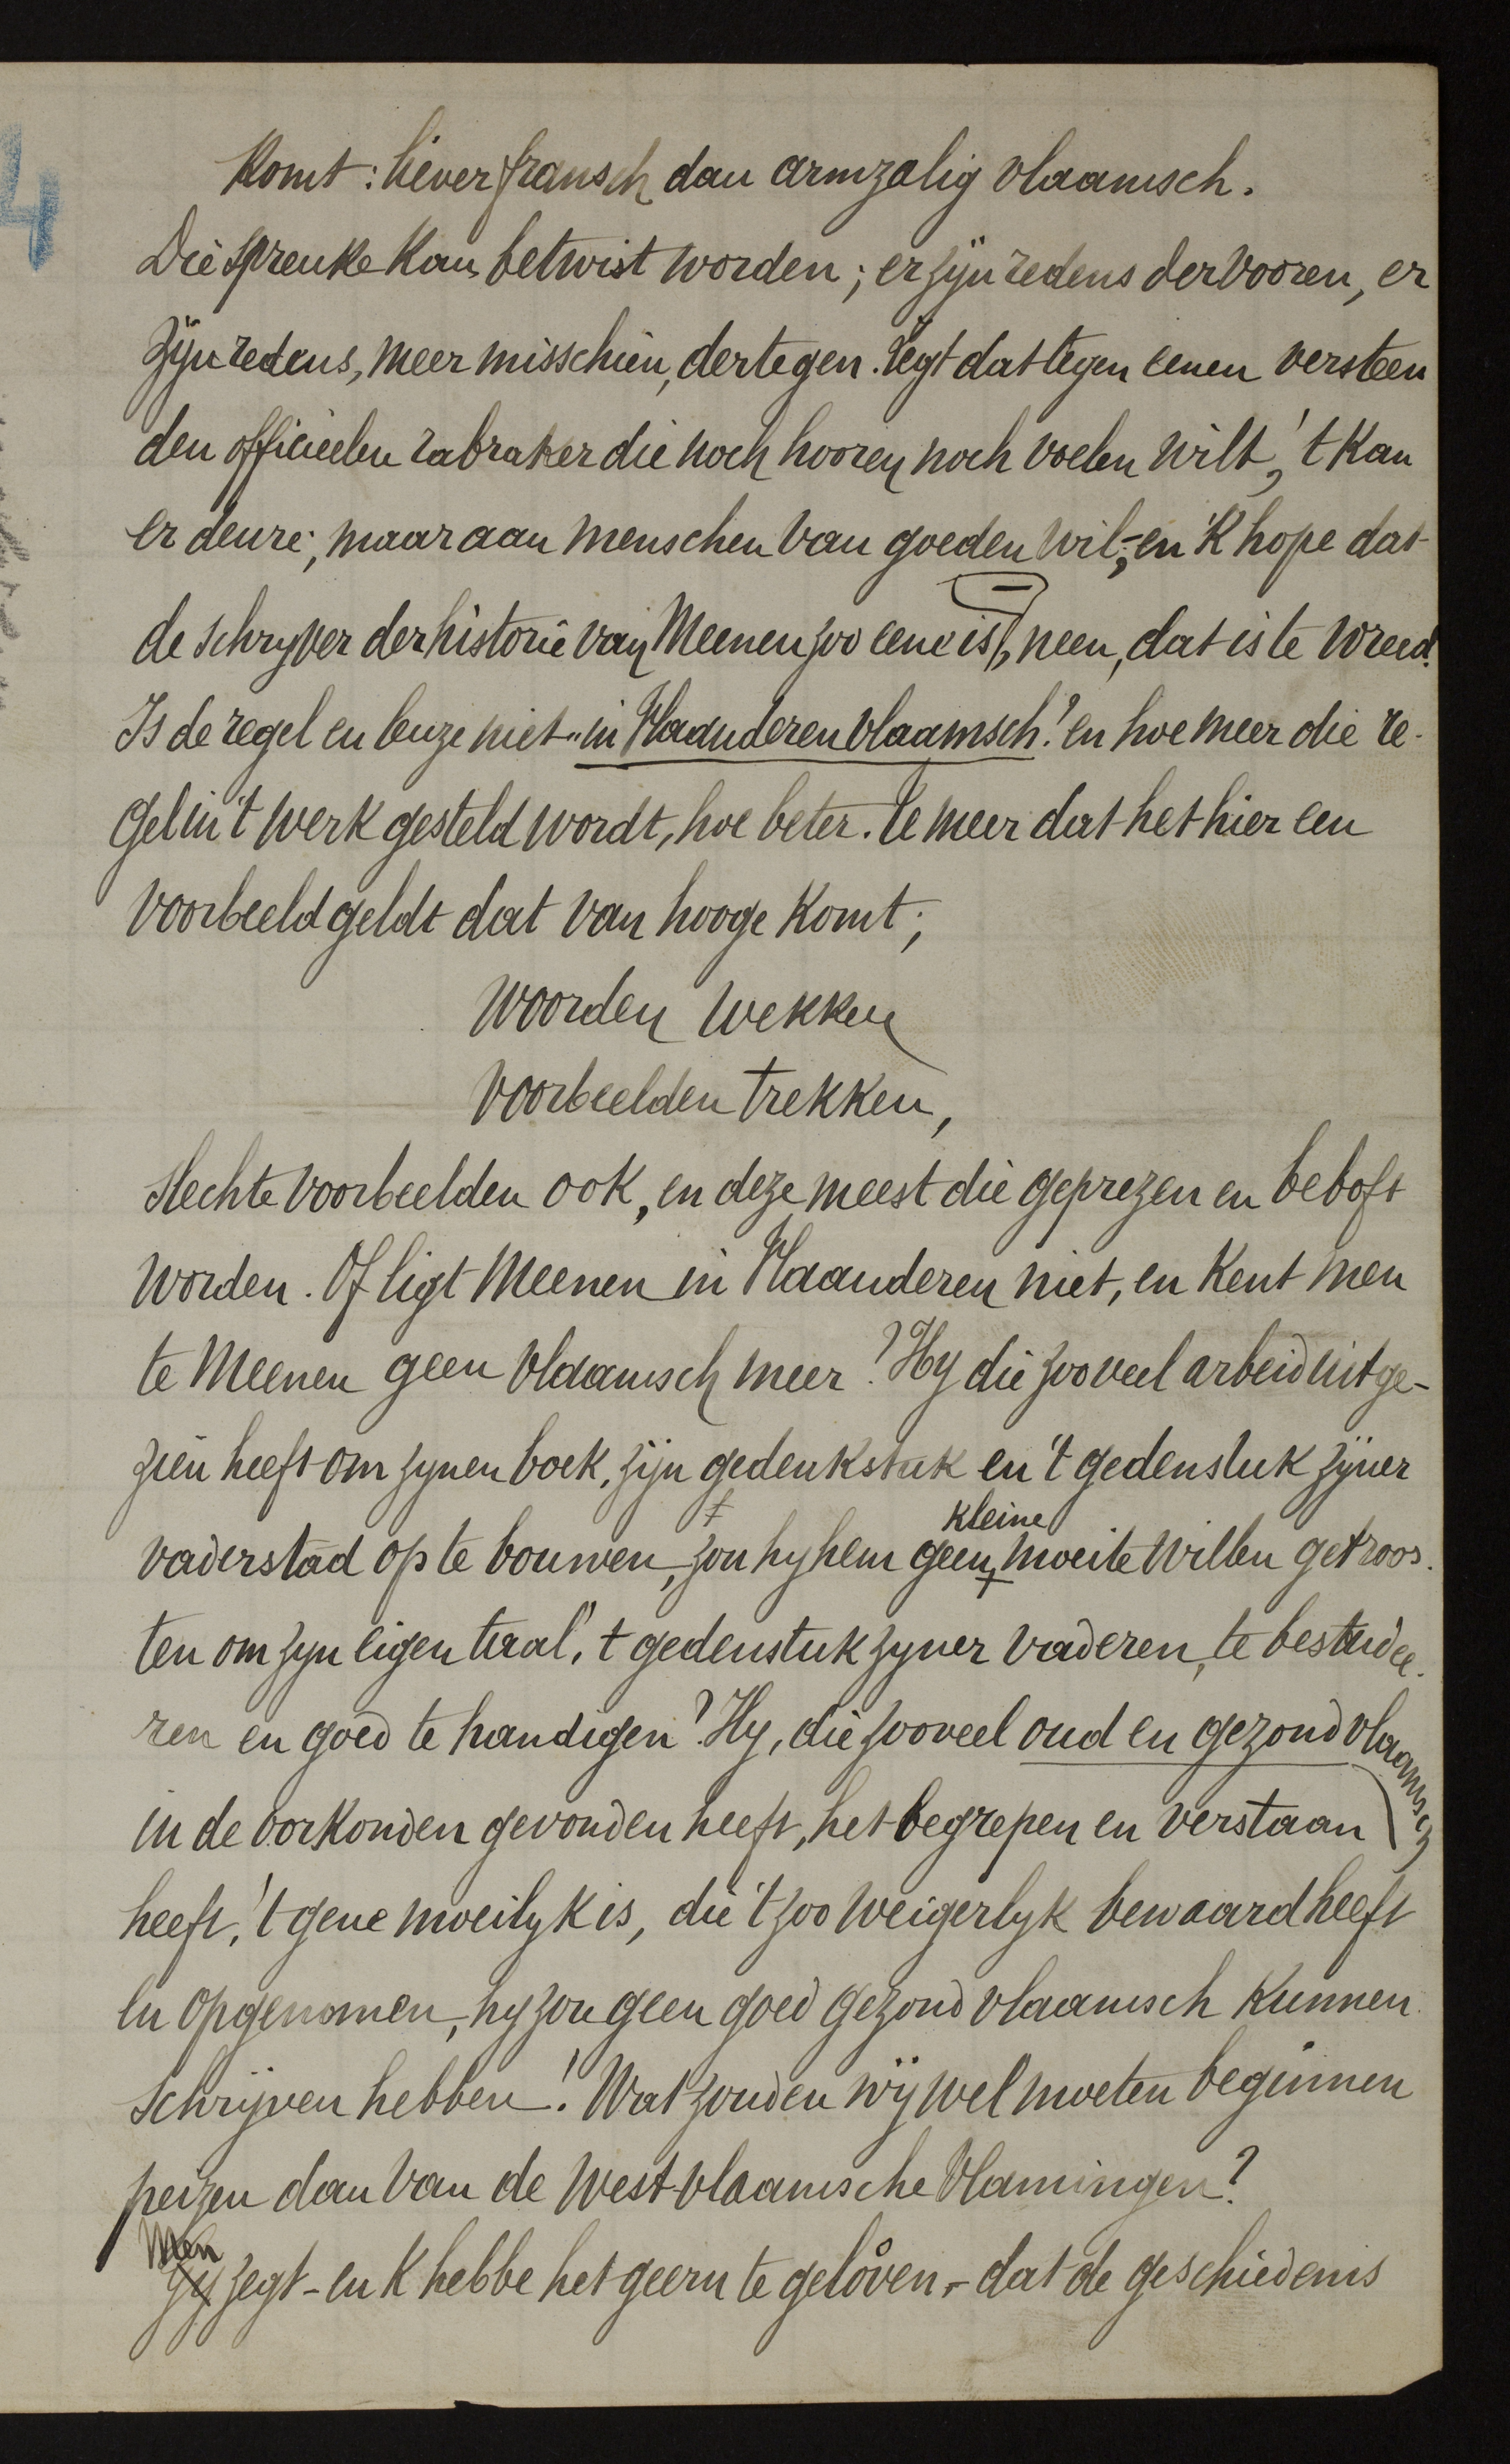 4
Komt: liever fransch dan armzalig vlaamsch.
Die spreuke kan betwist worden; er zyn redens dervooren, er
zyn redens, meer misschien, dertegen. Zegt dat tegen eenen versteen
den officieelen rabraker die noch hooren noch voelen wilt, 't kan
er deure; maar aan menschen van goeden wil, - en 'k hope dat
de schryver der historie van Meenen zoo eene is -, neen, dat is te wreed.
Is de regel en leuze niet "in Vlaanderen vlaamsch"? en hoe meer die re-
gel in 't werk gesteld wordt, hoe beter. Te meer dat het hier een
voorbeeld geldt dat van hooge komt;
woorden wekken
voorbeelden trekken,
slechte voorbeelden ook, en deze meest die geprezen en beboft
worden. Of ligt Meenen in Vlaanderen niet, en kent men
te Meenen geen vlaamsch meer? Hy die zooveel arbeid uitge-
zien heeft om zynen boek, zijn gedenkstuk en 't gedenstuk zyner
vaderstad op te bouwen, zou hy hem geen kleine moeite willen getroos-
ten om zyn eigen taal, 't gedenstuk zyner vaderen, te bestudee-
ren en goed te handigen? Hy, die zooveel oud en gezond vlaamsch
in de oorkonden gevonden heeft, het begrepen en verstaan
heeft, 't gene moeilyk is, die 't zoo weigerlyk bewaard heeft
en opgenomen, hy zou geen goed gezond vlaamsch kunnen
schrijven hebben! Wat zouden wij wel moeten beginnen
peizen dan van de west-vlaamsche Vlamingen?
Men zegt - en k hebbe het geern te geloven - dat de geschiedenis